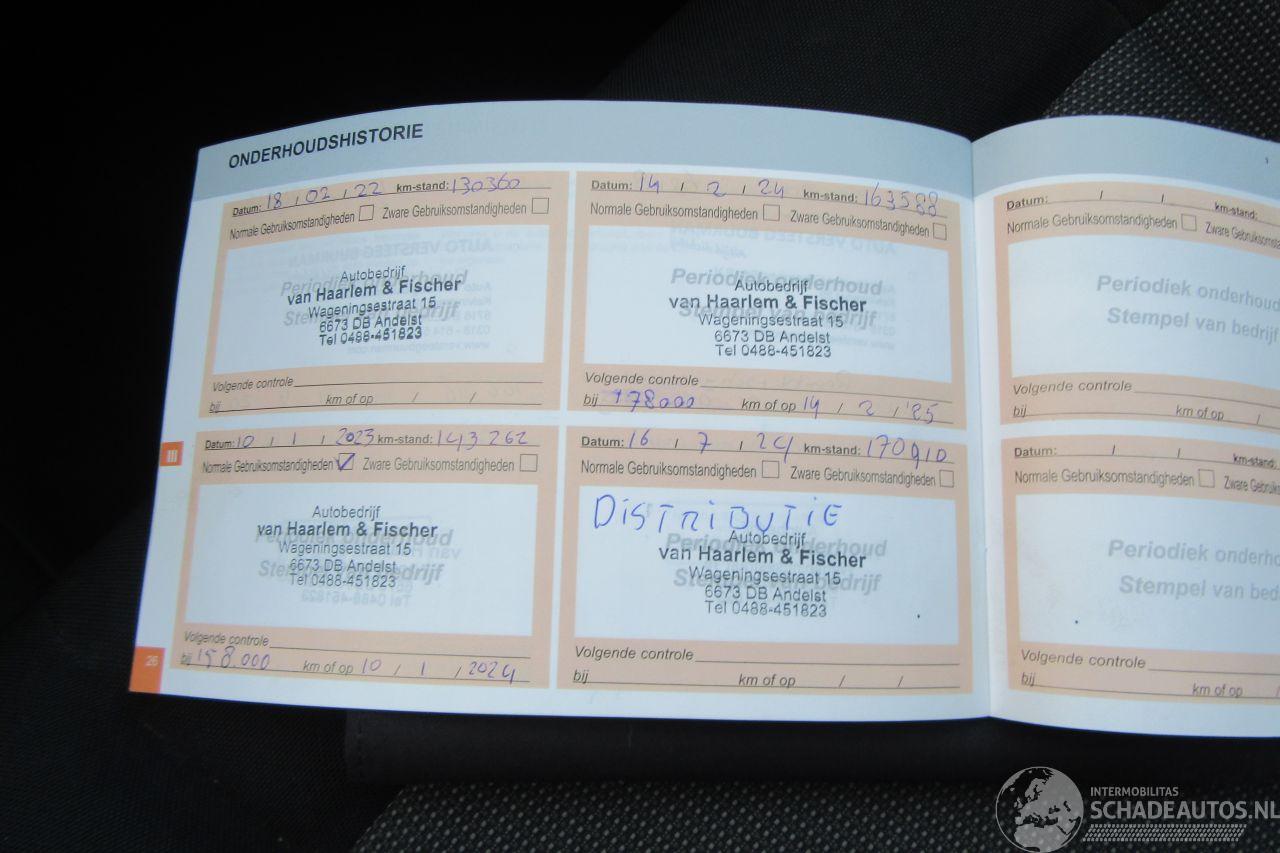 ONDERHOUDSHISTORIE
Datum: 18 / 02 / 22 km-stand: 130360
Normale Gebruiksomstandigheden Zware Gebruiksomstandigheden
Periodiek onderhoud
Stempel van bedrijf
Autobedrijf
van Haarlem & Fischer
Wageningsestraat 15
6673 DB Andelst
Tel 0488-451823
Volgende controle
bij km of op / /
Datum: 10 / 1 / 2023 km-stand: 143262
Normale Gebruiksomstandigheden Zware Gebruiksomstandigheden
Periodiek onderhoud
Stempel van bedrijf
Autobedrijf
van Haarlem & Fischer
Wageningsestraat 15
6673 DB Andelst
Tel 0488-451823
Volgende controle
bij 158.000 km of op 10 / 1 / 2024
III
26
Datum: 14 / 2 / 24 km-stand: 163588
Normale Gebruiksomstandigheden Zware Gebruiksomstandigheden
Periodiek onderhoud
Stempel van bedrijf
Autobedrijf
van Haarlem & Fischer
Wageningsestraat 15
6673 DB Andelst
Tel 0488-451823
Volgende controle
bij 178000 km of op 14 / 2 / '25
Datum: 16 / 7 / 24 km-stand: 170910
Normale Gebruiksomstandigheden Zware Gebruiksomstandigheden
DISTRIBUTIE
Periodiek onderhoud
Stempel van bedrijf
Autobedrijf
van Haarlem & Fischer
Wageningsestraat 15
6673 DB Andelst
Tel 0488-451823
Volgende controle
bij km of op / /
Datum: / / km-stand:
Normale Gebruiksomstandigheden Zware
Periodiek onderhoud
Stempel van bedrijf
Volgende controle
bij km of op /
Datum: / / km-stand:
Normale Gebruiksomstandigheden Zware
Periodiek
Stempel van
Volgende controle
bij km of op /
INTERMOBILITAS
SCHADEAUTOS.NL